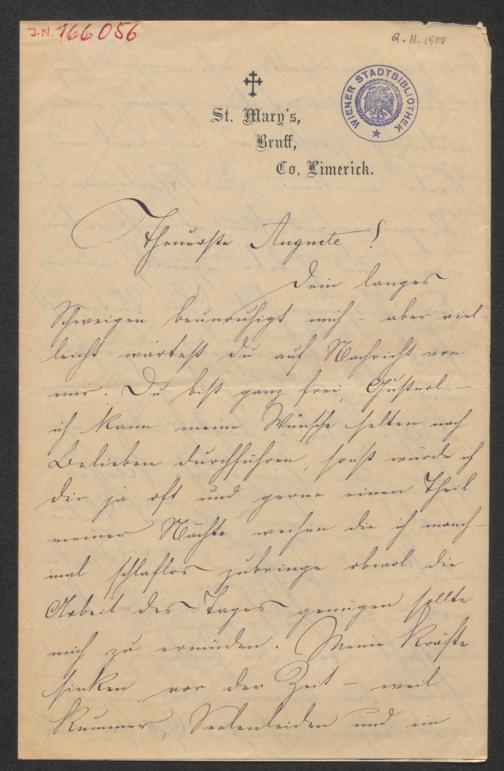 J.N. 166056
9. 11. 1900
WIENER STADTBIBLIOTHEK
St. Mary's,
Bruff,
Co. Limerick.
Theuerste Auguste!
Dein langes
Schweigen beunruhigt mich – aber viel
leicht wartest du auf Nachricht von
mir. Du bist ganz frei, –
ich kann meine Wünsche selten nach
Belieben durchführen, sonst würde ich
dir ja oft und gerne einen Theil
meiner Nächte weihen die ich manch-
mal schlaflos zubringe obwol die
Arbeit des Tages genügen sollte
mich zu ermüden. Meine Kräfte
sinken vor der Zeit – weil
Kummer, Seelenleiden und ein